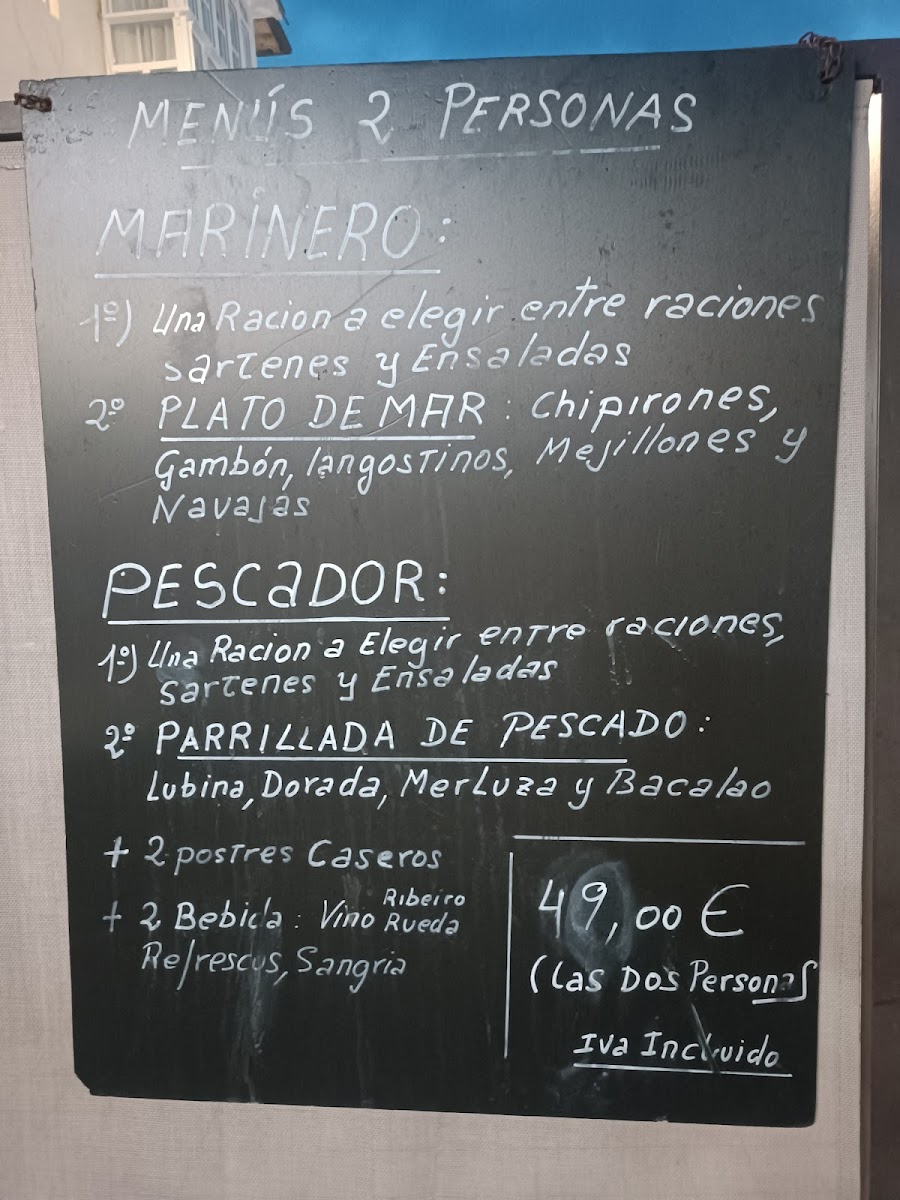 MENÚS 2 PERSONAS
MARINERO:
1º) Una Racion a elegir entre raciones
sartenes y Ensaladas
2º PLATO DE MAR: Chipirones,
Gambón, langostinos, Mejillones y
Navajas
PESCADOR:
1º) Una Racion a Elegir entre raciones,
sartenes y Ensaladas
2º PARRILLADA DE PESCADO:
Lubina, Dorada, Merluza y Bacalao
+ 2 postres Caseros
+ 2 Bebida: Vino Ribeiro
Rueda
Refrescos, Sangria
49,00 €
(Las Dos Personas
Iva Incluido